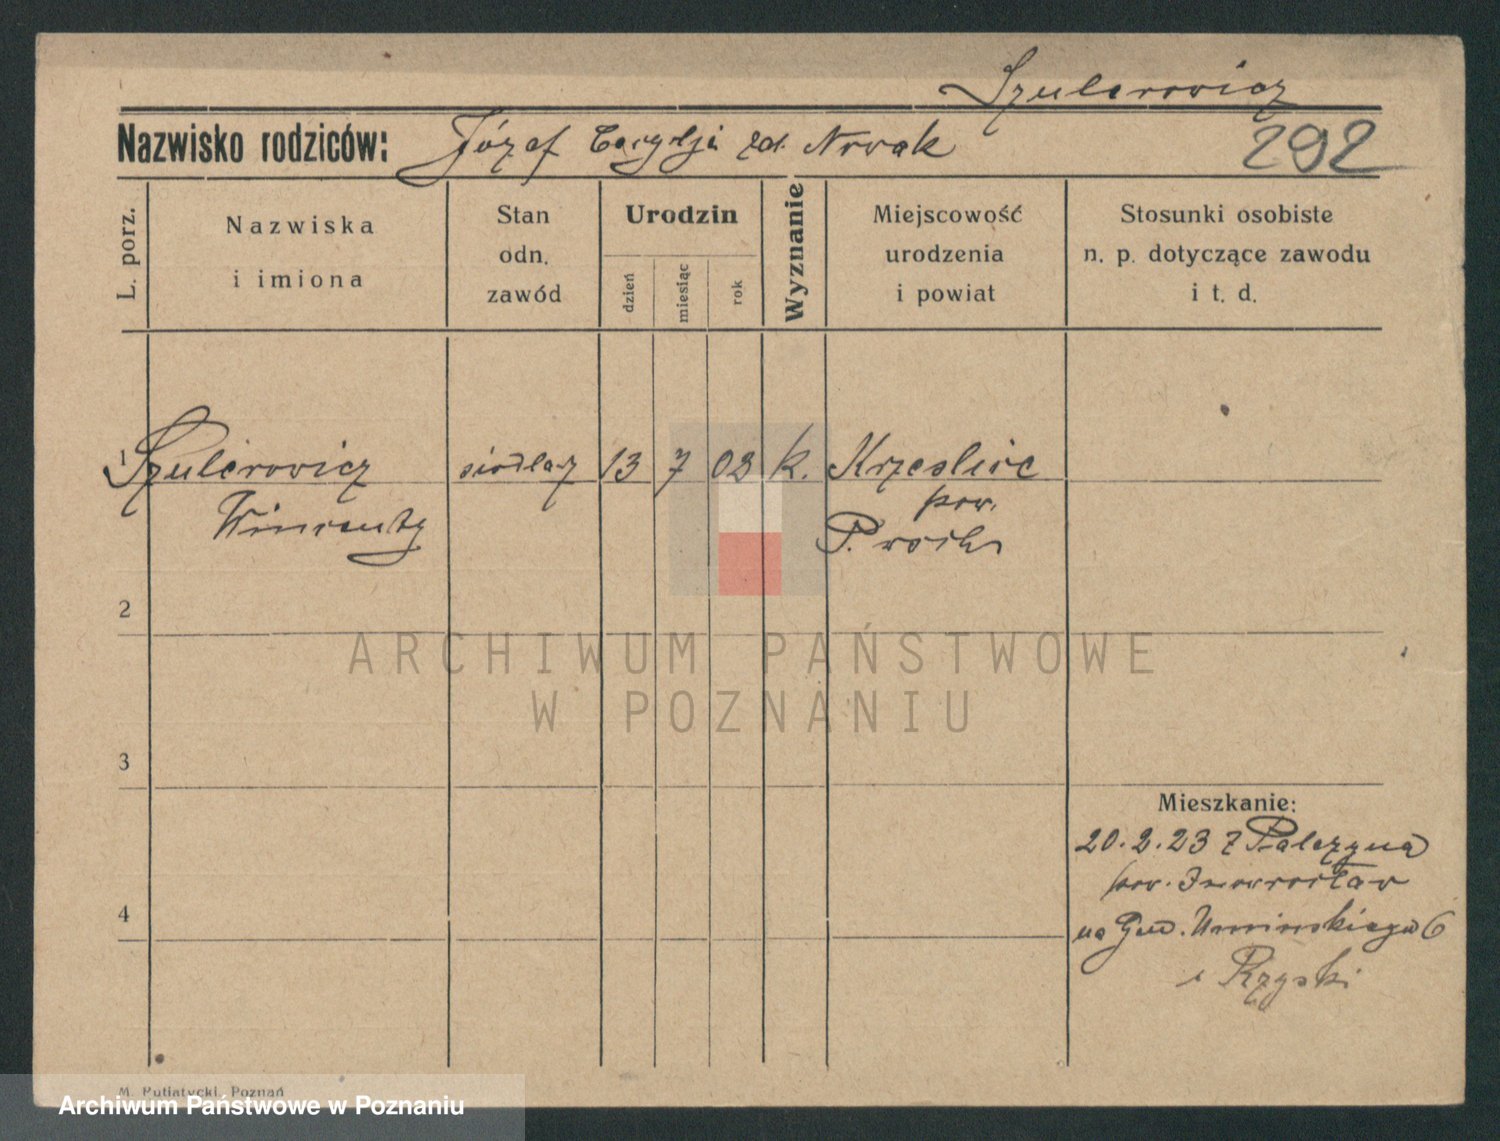 Szulcrowicz
Nazwisko rodziców: Józef Cecylji zd. Nowak 292
L. porz.
Nazwiska
i imiona
Stan
odn.
zawód
Urodzin
dzień
miesiąc
rok
Wyznanie
Miejscowość
urodzenia
i powiat
Stosunki osobiste
n. p. dotyczące zawodu
i t. d.
1 Szulcrowicz siodlarz 13 7 08 k. Krzeslice
Wincenty pow.
P. wsch.
2
ARCHIWUM PAŃSTWOWE
W POZNANIU
3
Mieszkanie:
20.2.23 z Palczyna
pow. Inowrocław
4
na Gen. Umińskiego 6
M. Putiatycki, Poznań
Archiwum Państwowe w Poznaniu